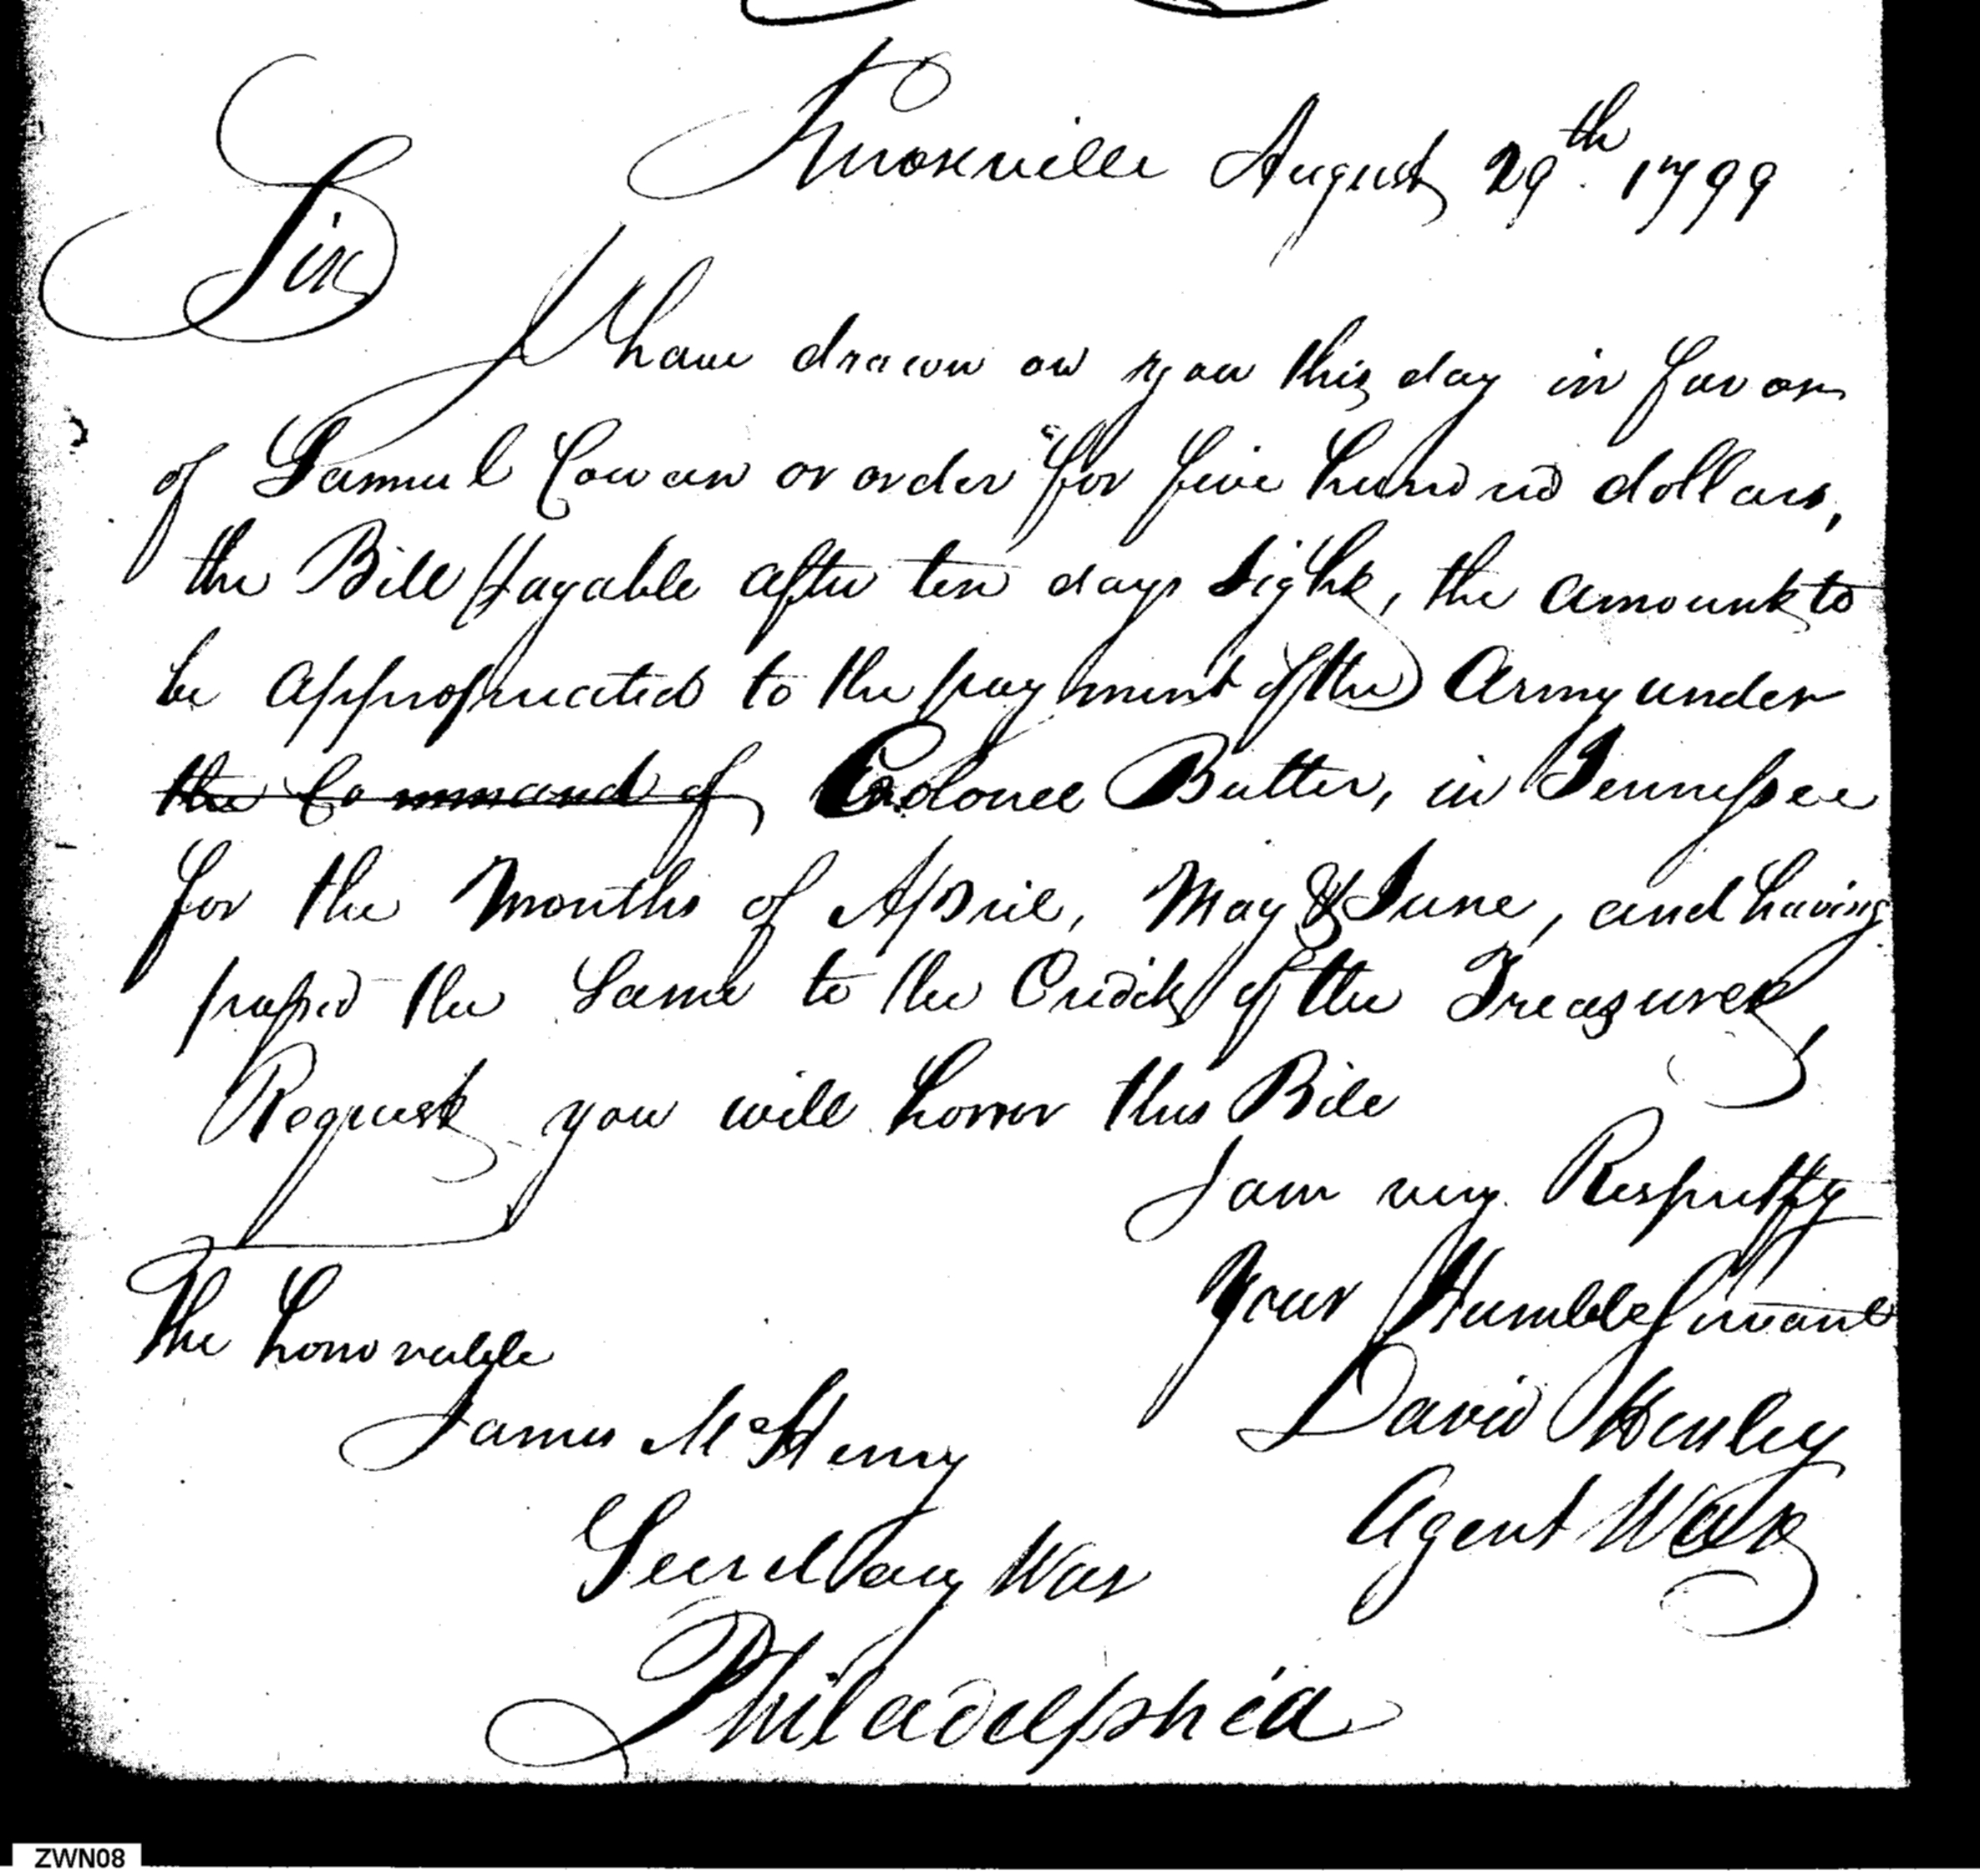 Knoxville August 29th 1799
Sir
I have drawn on you this day in favor
of Samuel Cowan or order for five hundred dollars,
the Bill payable after ten days sight, the amount to
be appropriated to the payment of the Army under
the Command of Colonel Butler, in Tennessee
for the Months of April, May & June, and having
passed the same to the Credit of the Treasurer
Request you will honor this Bill
I am very Respectfy
Your Humble Servant
The honorable
David Henley
James McHenry
Agent War
Secretary War
Philadelphia
ZWN08